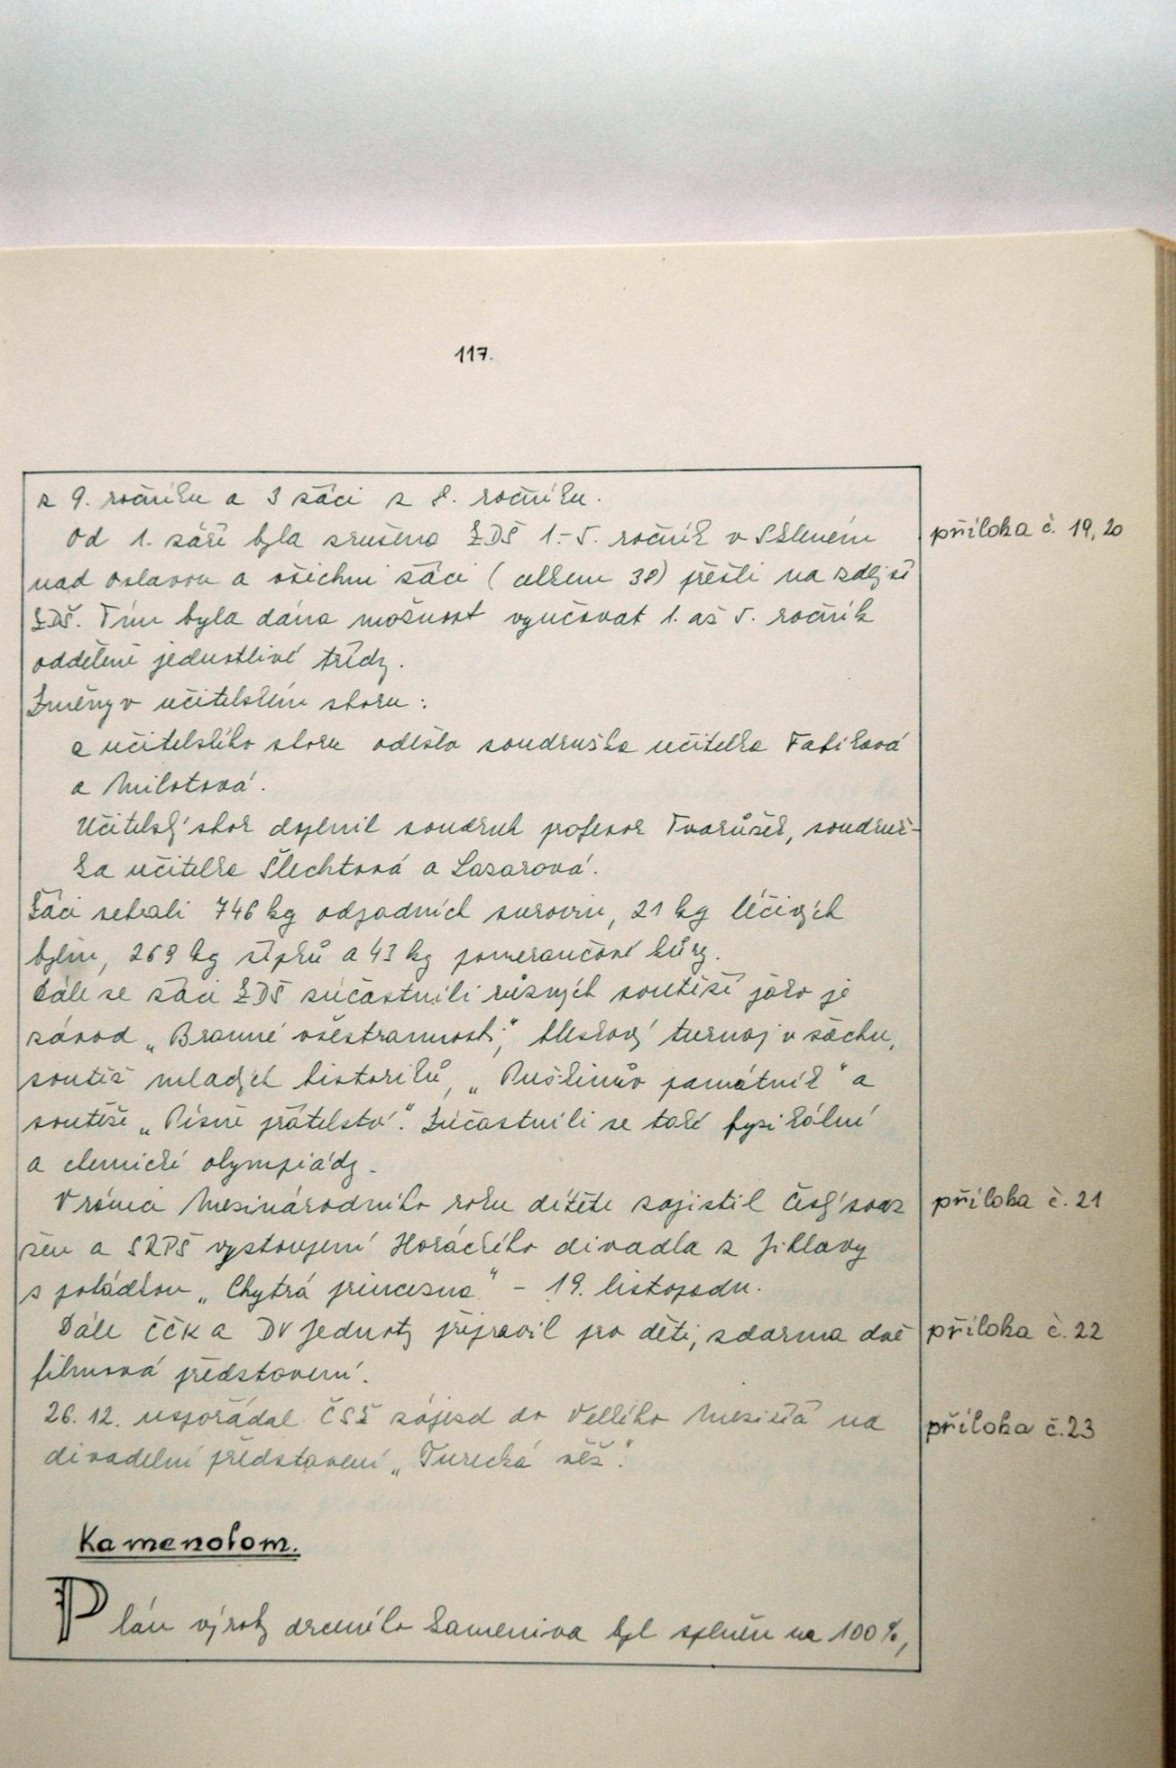 117.
z 9. ročníku a 3 žáci z 8. ročníku.
Od 1. září byla zrušena ZDŠ 1.-5. ročník v Skleném
příloha č. 19, 20
nad Oslavou a všichni žáci (celkem 38) přešli na zdejší
ZDŠ. Tím byla dána možnost vyučovat 1. až 5. ročník
odděleně jednotlivé třídy.
Změny v učitelském sboru:
z učitelského sboru odešla soudružka učitelka
a Milotová.
Učitelský sbor doplnil soudruh profesor Tvarůžek, soudruž-
ka učitelka Šlechtová a Lazarová.
Žáci sebrali 746 kg odpadních surovin, 21 kg léčivých
bylin, 269 kg šípků a 43 kg pomerančové kůry.
Dále se žáci ZDŠ zúčastnili různých soutěží jako je
závod „Branné všestrannosti", bleskový turnaj v šachu,
soutěž mladých historiků, „Puškinův památník" a
soutěže „Písně přátelství". Zúčastnili se také fyzikální
a chemické olympiády.
V rámci Mezinárodního roku dítěte zajistil Český svaz
příloha č. 21
žen a SRPŠ vystoupení Horáckého divadla z Jihlavy
s pořádkou „Chytrá princezna" - 19. listopadu.
Dále ČČK a DV Jednoty připravil pro děti, zdarma dvě
příloha č. 22
filmová představení.
26. 12. uspořádal ČSŽ zájezd do Velkého Meziříčí na
příloha č. 23
divadelní představení „Turecká věž".
Kamenolom.
Plán výroby drceného kameniva byl splněn na 100%,